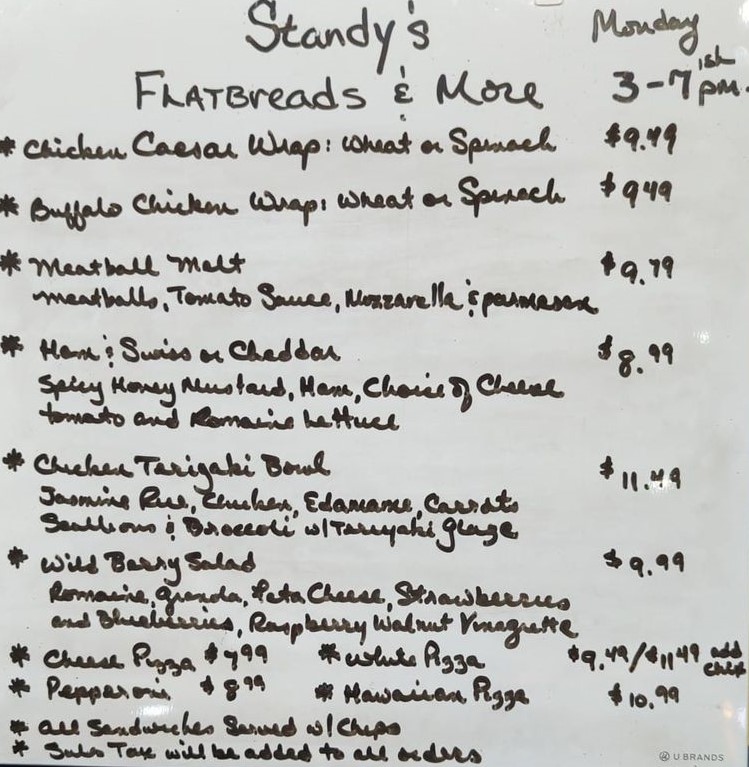 Standy's Monday
Flatbreads & More 3-7 pm.
* Chicken Caesar Wrap: Wheat or Spinach $9.49
* Buffalo Chicken Wrap: Wheat or Spinach $949
* Meatball Malt $9.79
Meatballs, Tomato Sauce, Mozzarella & parmesan
* Ham & Swiss or Cheddar $8.99
Spicy Honey Mustard, Ham, Choice of Cheese
tomato and Romaine Lettuce
* Chicken Tariyaki Bowl $11.49
Jasmine Rice, Chicken, Edamame, Carrots
Scallions & Broccoli w/Tariyaki glaze
* Wild Barry Salad $9.99
Romaine, Feta Cheese, Strawberries
and Blueberries, Raspberry Walnut Vinagrette
* Cheese Pizza $799 * White Pizza $9.49/$1149 add
* Pepperoni $899 * Hawaiian Pizza $10.99
* All Sandwiches Served w/Chips
* Sales Tax will be added to all orders
U BRANDS